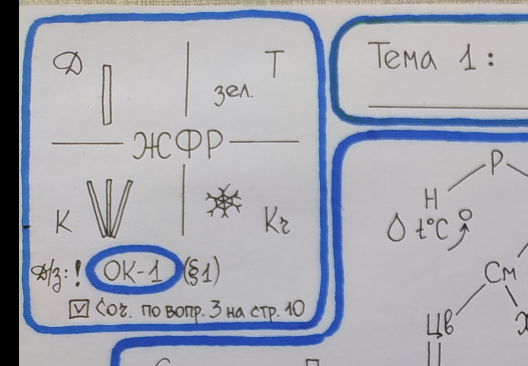 Д
Т
зел.
ЖФР
К
Кг
Д/з: ! ОК-1 (§1)
Соч. по вопр. 3 на стр. 10
Тема 1:
Р
Н
t°C
См
Цв